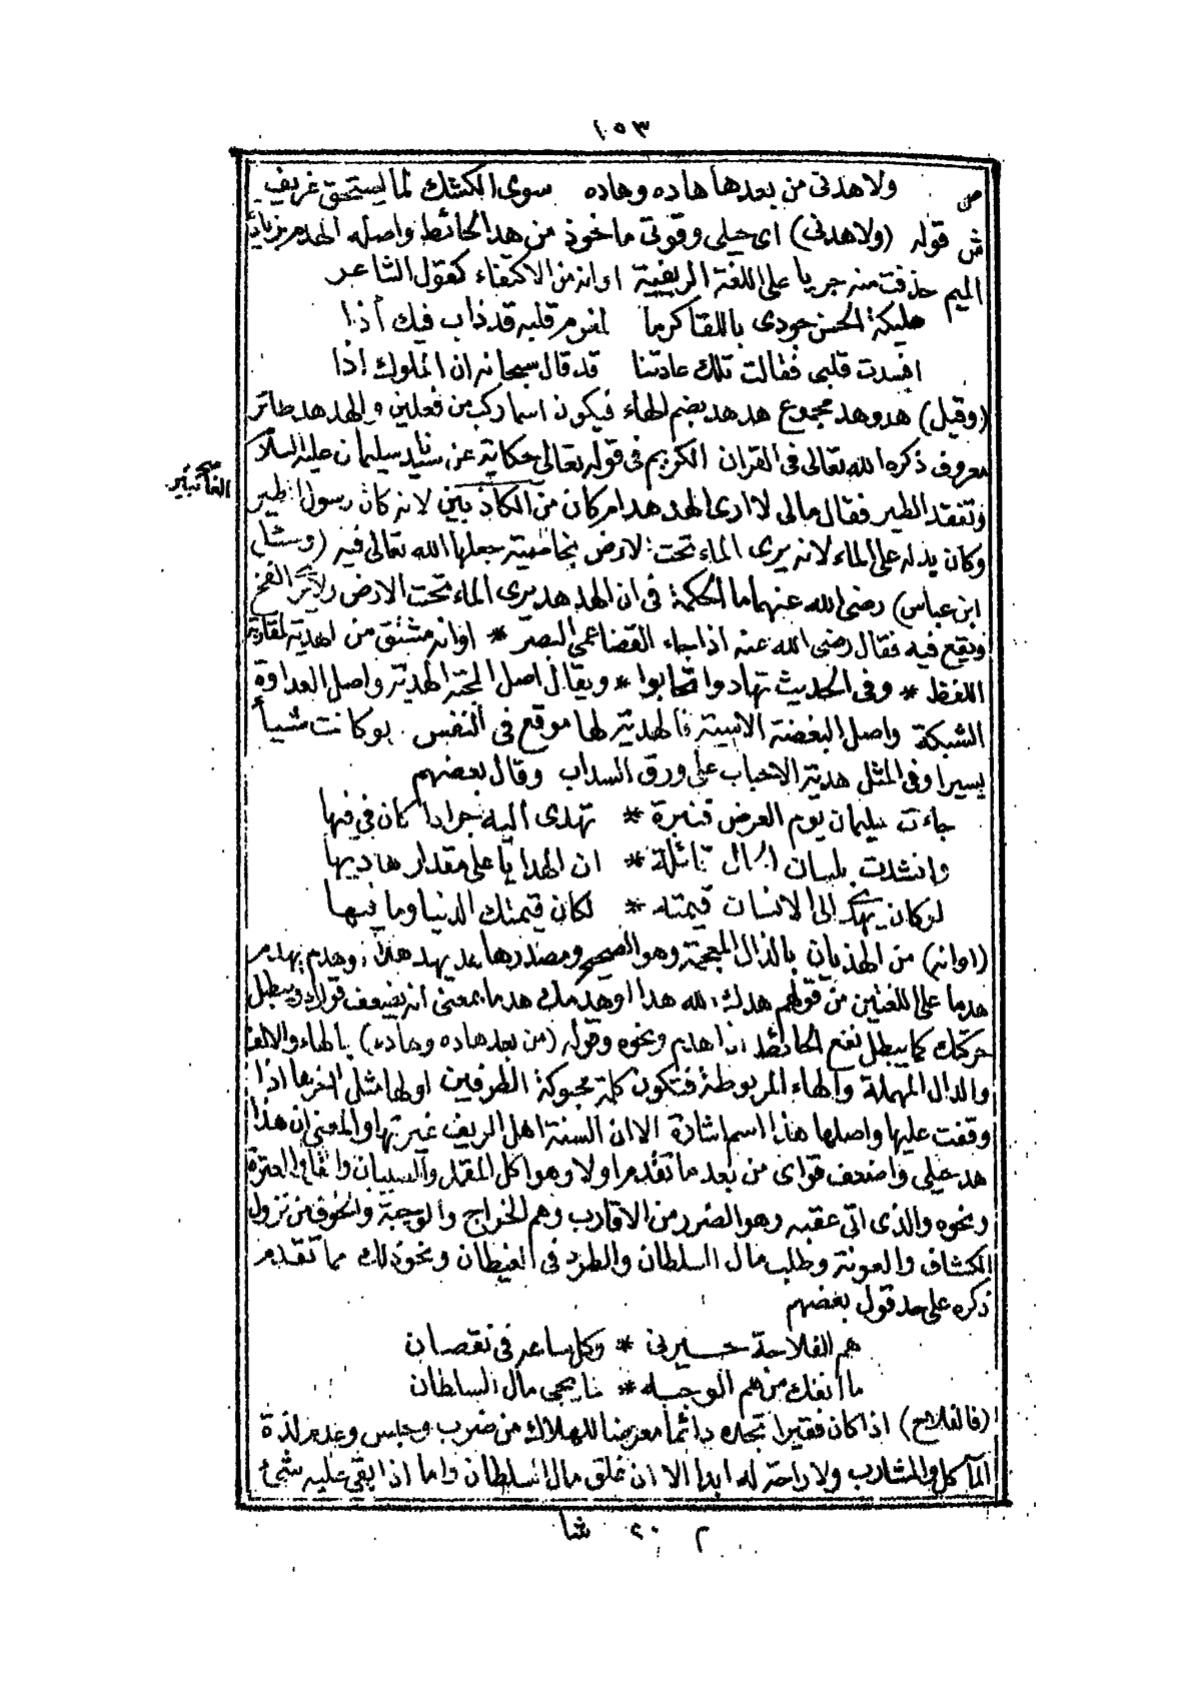 ١٥٣
ص ولا هدنى من بعدها هاده وهاده سوى الكشك لما يستحق غريف
ش قوله (ولا هدنى) اى حيلى وقوتى مأخوذ من هد الحائط واصله الهدم بزيادة
الميم حذفت منه جريا على اللغة الريفية او انه من الاكتفاء كقول الشاعر
مليكة الحسن جودى باللقا كرما لمغرم قلبه قد ذاب فيك أذا
افسدت قلبى فقالت تلك عادتنا قد قال سبحانه ان الملوك اذا
(وقيل) هد وهد مجموع هدهد بضم الهاء فيكون اسما ركب من فعلين والهدهد طائر
معروف ذكره الله تعالى فى القران الكريم فى قوله تعالى حكاية عن سيدنا سليمان عليه السلام
وتفقد الطير فقال مالى لا ارى الهدهد ام كان من الكاذبين لانه كان رسول الطير
الغائبين صح
وكان يدله على الماء لانه يرى الماء تحت الارض بخاصية جعلها الله تعالى فيه (وسئل
ابن عباس) رضى الله عنهما ما الحكمة فى ان الهدهد يرى الماء تحت الارض ولا يرى الفخ
ويقع فيه فقال رضى الله عنه اذا جاء القضا عمى البصر * او انه مشتق من الهدية لمقاربة
اللفظ * وفى الحديث تهادوا تحابوا * ويقال اصل المحبة الهدية واصل العداوة
الشبكة واصل البغضة الاسية فالهدية لها موقع فى النفس ولو كانت شيأ
يسيرا وفى المثل هدية الاحباب على ورق السداب وقال بعضهم
جاءت سليمان يوم العرض قنبرة * تهدى اليه جرادا كان فى فيها
وانشدت بلسان الحال قائلة * ان الهدايا على مقدار هاديها
لو كان يهدى الى الانسان قيمته * لكان قيمتك الدنيا وما فيها
(او انه) من الهذيان بالذال المعجمة وهو الصحيح ومصدرها هد يهد هدا وهدم يهدم
هدما على اللغتين من قولهم هدك الله هدا او هدمك هدما بمعنى انه يضعف قواك ويبطل
حركتك كما يبطل نفع الحائط اذا هدم ونحوه وقوله (من بعد هاده وهاده) بالهاء والالف
والدال المهملة والهاء المربوطة فتكون كلمة محبوكة الطرفين اولها مثل اخرها اذا
وقفت عليها واصلها هذا اسم اشارة الا ان السنة اهل الريف غيرتها والمعنى ان هذا
هد حيلى واضعف قواى من بعد ما تقدم اولا وهو اكل القمل والسيبان والقا والعترة
ونحوه والذى اتى عقبه وهو الضرر من الاقارب وهم الخراج والوجبة والخوف من نزول
الكشاف والعونة وطلب مال السلطان والطرد فى الغيطان ونحو ذلك مما تقدم
ذكره على حد قول بعضهم
هم الفلاحة حيرنى * وكل ساعه فى نقصان
ما انفك من هم الوجبه * لما يجى مال السلطان
(فالفلاح) اذا كان فقيرا تجده دائما معرضا للهلاك من ضرب وحبس وعدم لذة
المآكل والمشارب ولا راحة له ابدا الا ان غلق مال السلطان واما اذا بقى عليه شئ
٢ ٢٠ شا